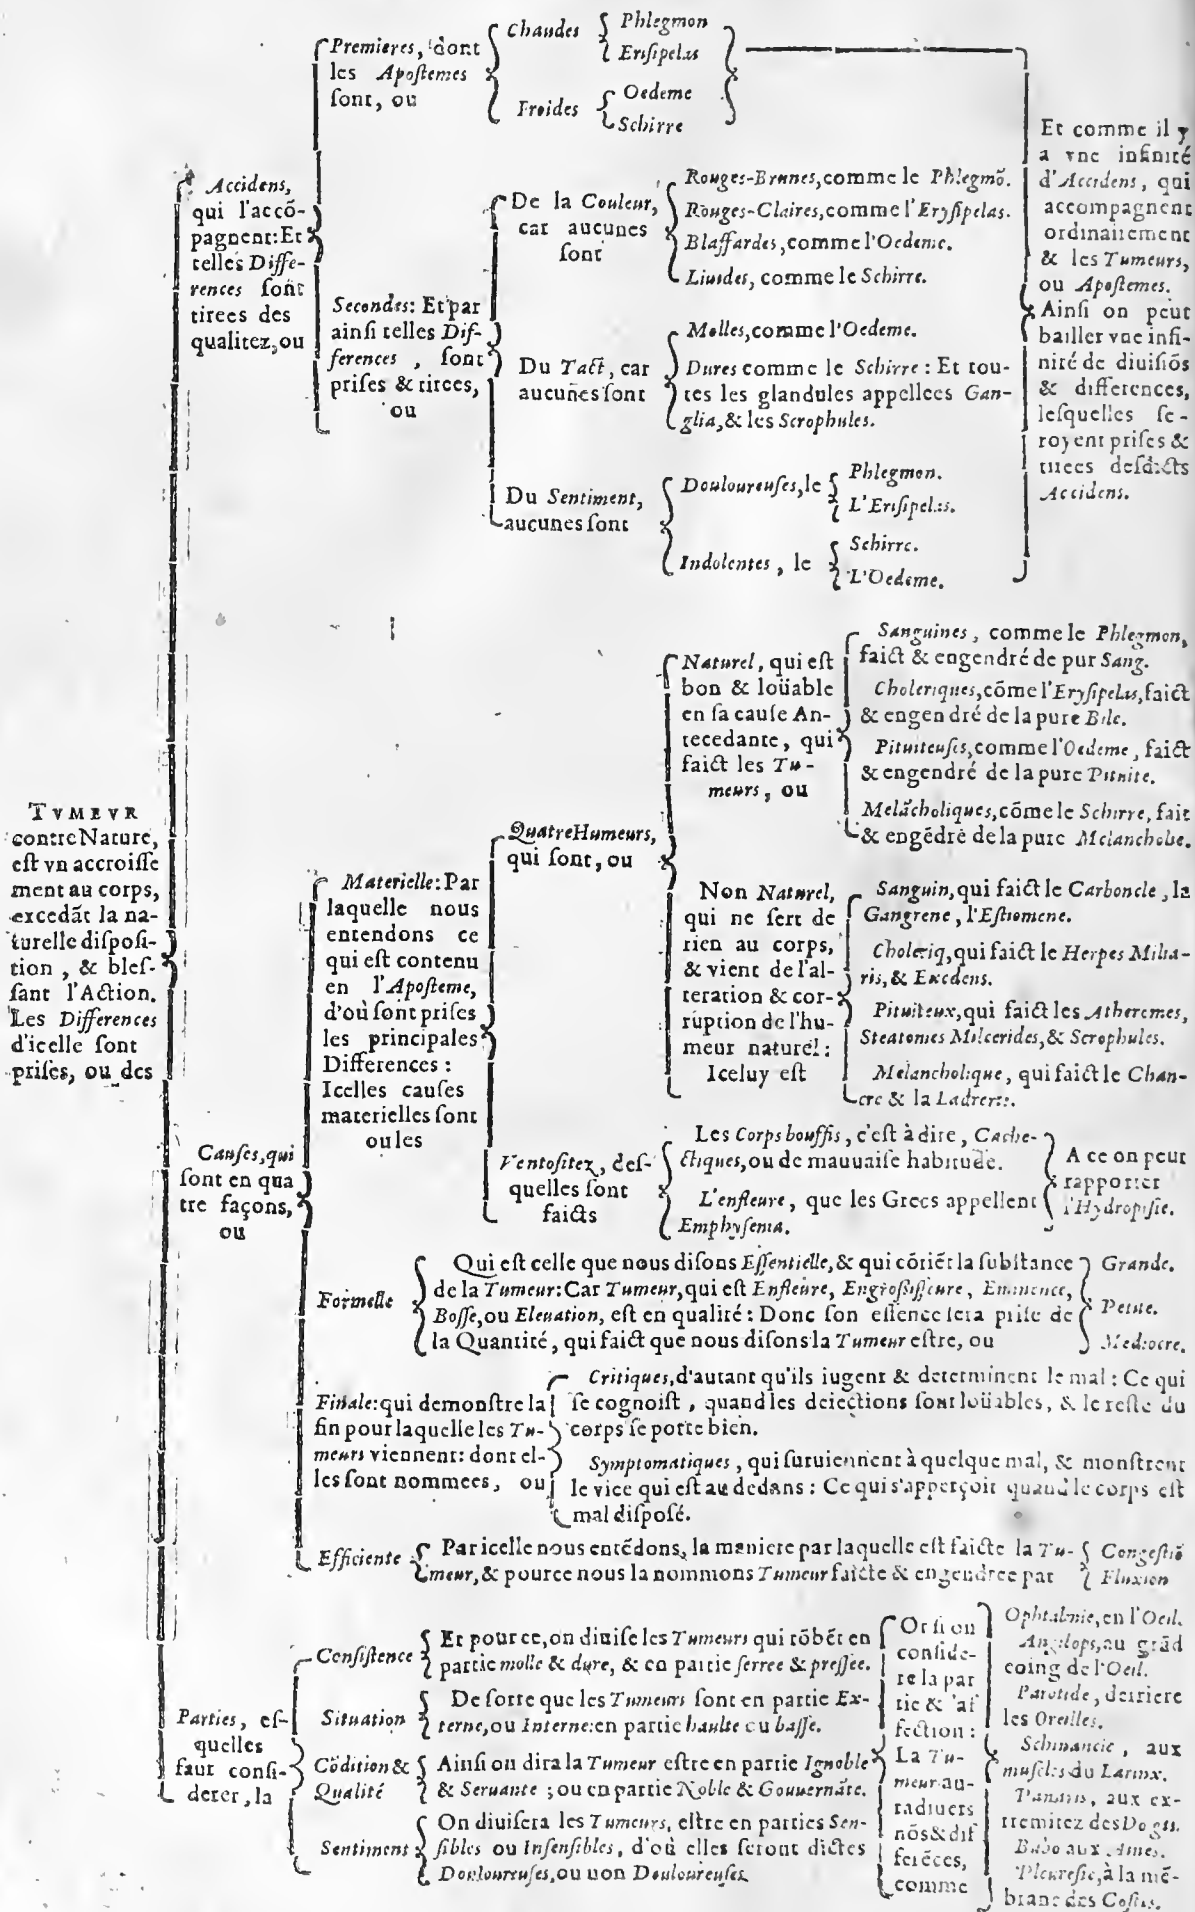 TVMEVR
contre Nature,
est vn accroisse
ment au corps,
excedãt la na-
turelle disposi-
tion, & bles-
sant l'Action.
Les Differences
d'icelle sont
prises, ou des
Accidens,
qui l'accõ-
pagnent: Et
telles Diffe-
rences sont
tirees des
qualitez, ou
Premieres, dont
les Apostemes
sont, ou
Chaudes
Phlegmon
Erisipelas
Froides
Oedeme
Schirre
Secondes: Et par
ainsi telles Dif-
ferences, sont
prises & tirees,
ou
De la Couleur,
car aucunes
sont
Rouges-Brunes, comme le Phlegmõ.
Rouges-Claires, comme l'Erysipelas.
Blaffardes, comme l'Oedeme.
Liuides, comme le Schirre.
Du Tact, car
aucunes sont
Molles, comme l'Oedeme.
Dures comme le Schirre: Et tou-
tes les glandules appellees Gan-
glia, & les Scrophules.
Du Sentiment,
aucunes sont
Douloureuses, le
Phlegmon.
L'Erisipelas.
Indolentes, le
Schirre.
L'Oedeme.
Et comme il y
a vne infinité
d'Accidens, qui
accompagnent
ordinairement
& les Tumeurs,
ou Apostemes.
Ainsi on peut
bailler vne infi-
nité de diuisiõs
& differences,
lesquelles se-
royent prises &
tirees desdicts
Accidens.
Causes, qui
sont en qua
tre façons,
ou
Materielle: Par
laquelle nous
entendons ce
qui est contenu
en l'Aposteme,
d'où sont prises
les principales
Differences:
Icelles causes
materielles sont
ou les
Quatre Humeurs,
qui sont, ou
Naturel, qui est
bon & loüable
en sa cause An-
tecedante, qui
faict les Tu-
meurs, ou
Sanguines, comme le Phlegmon,
faict & engendré de pur Sang.
Choleriques, cõme l'Erysipelas, faict
& engendré de la pure Bile.
Pituiteuses, comme l'Oedeme, faict
& engendré de la pure Pituite.
Melãcholiques, cõme le Schirre, fait
& engẽdré de la pure Melancholie.
Non Naturel,
qui ne sert de
rien au corps,
& vient de l'al-
teration & cor-
ruption de l'hu-
meur naturel:
Iceluy est
Sanguin, qui faict le Carboncle, la
Gangrene, l'Estiomene.
Choleriq, qui faict le Herpes Milia-
ris, & Exedens.
Pituiteux, qui faict les Atheromes,
Steatomes Milcerides, & Scrophules.
Melancholique, qui faict le Chan-
cre & la Ladrerie.
Ventositez, des-
quelles sont
faicts
Les Corps bouffis, c'est à dire, Cache-
ctiques, ou de mauuaise habitude.
L'enfleure, que les Grecs appellent
Emphysema.
A ce on peut
rapporter
l'Hydropisie.
Formelle
Qui est celle que nous disons Essentielle, & qui cõtiẽt la substance
de la Tumeur: Car Tumeur, qui est Enfleure, Engrossisseure, Eminence,
Bosse, ou Eleuation, est en qualité: Donc son essence sera prise de
la Quantité, qui faict que nous disons la Tumeur estre, ou
Grande.
Petite.
Mediocre.
Finale: qui demonstre la
fin pour laquelle les Tu-
meurs viennent: dont el-
les sont nommees, ou
Critiques, d'autant qu'ils iugent & determinent le mal: Ce qui
se cognoist, quand les deiections sont loüables, & le reste du
corps se porte bien.
Symptomatiques, qui suruiennent à quelque mal, & monstrent
le vice qui est au dedans: Ce qui s'apperçoit quand le corps est
mal disposé.
Efficiente
Par icelle nous entẽdons, la maniere par laquelle est faicte la Tu-
meur, & pource nous la nommons Tumeur faicte & engendree par
Congestiõ
Fluxion
Parties, es-
quelles
faut consi-
derer, la
Consistence
Et pour ce, on diuise les Tumeurs qui tõbẽt en
partie molle & dure, & en partie serree & pressee.
Situation
De sorte que les Tumeurs sont en partie Ex-
terne, ou Interne: en partie haulte ou basse.
Cõdition &
Qualité
Ainsi on dira la Tumeur estre en partie Ignoble
& Seruante; ou en partie Noble & Gouuernãte.
Sentiment
On diuisera les Tumeurs, estre en parties Sen-
sibles ou Insensibles, d'où elles seront dictes
Douloureuses, ou non Douloureuses
Or si on
conside-
re la par
tie & l'af
fection:
La Tu-
meur au-
ra diuers
nõs & dif
ferẽces,
comme
Ophtalmie, en l'Oeil.
Angilops, au grãd
coing de l'Oeil.
Parotide, derriere
les Oreilles.
Schinancie, aux
muscles du Larinx.
Panaris, aux ex-
tremitez des Dogts.
Bubo aux Aines.
Pleuresie, à la mẽ-
brane des Costes.